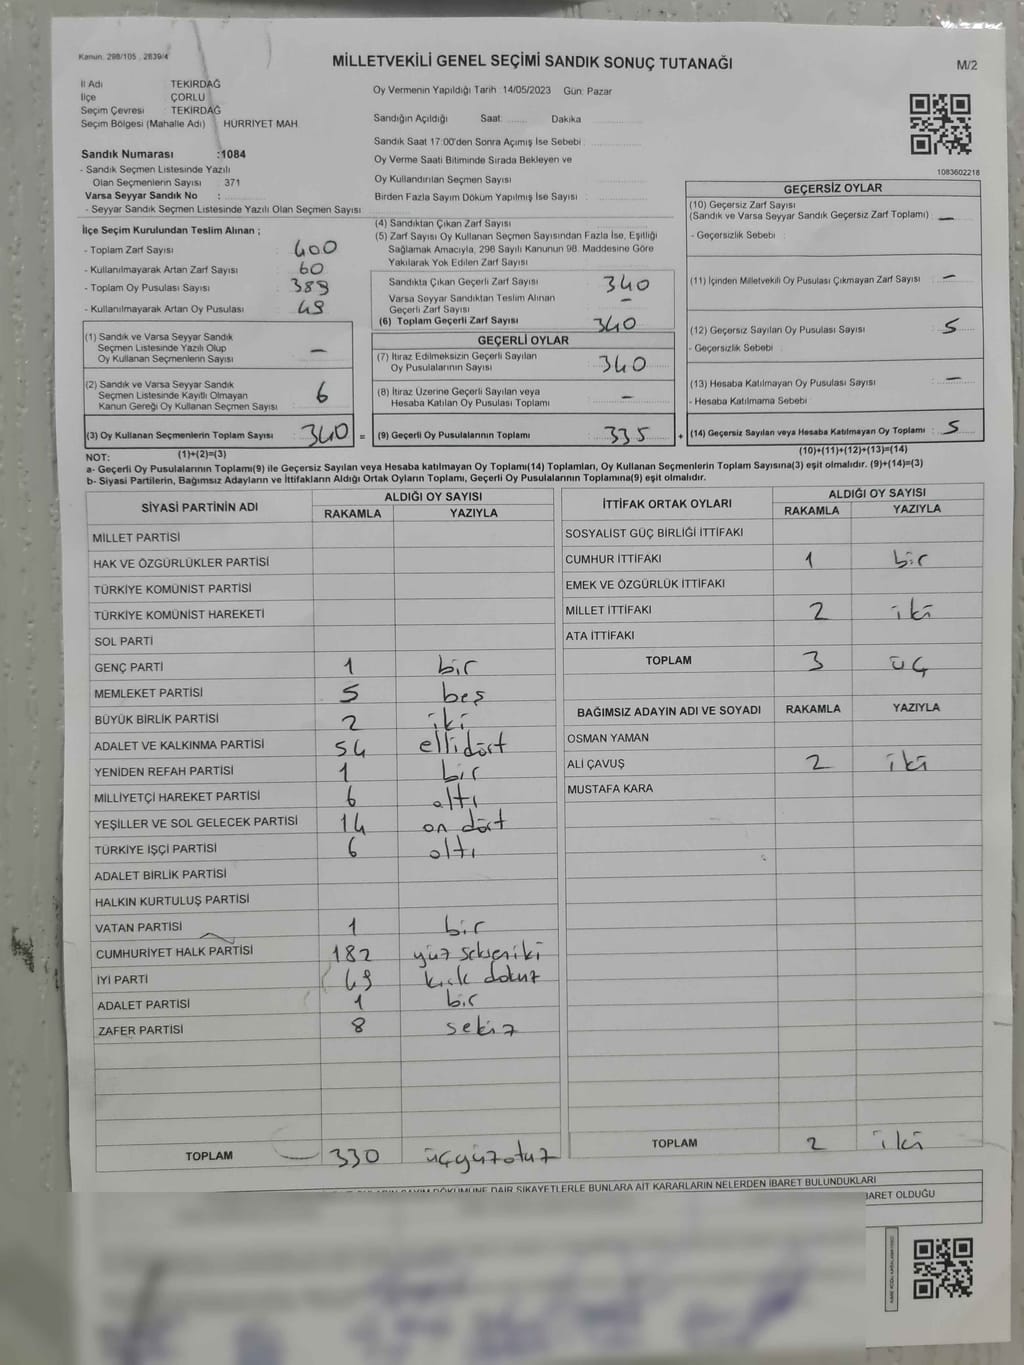 Kanun. 298/105 , 2839/4
MİLLETVEKİLİ GENEL SEÇİMİ SANDIK SONUÇ TUTANAĞI
M/2
İl Adı TEKİRDAĞ
İlçe ÇORLU
Seçim Çevresi TEKİRDAĞ
Seçim Bölgesi (Mahalle Adı) HÜRRİYET MAH.
Sandık Numarası :1084
- Sandık Seçmen Listesinde Yazılı
Olan Seçmenlerin Sayısı : 371
Varsa Seyyar Sandık No :
- Seyyar Sandık Seçmen Listesinde Yazılı Olan Seçmen Sayısı :
Oy Vermenin Yapıldığı Tarih :14/05/2023 Gün: Pazar
Sandığın Açıldığı Saat: ........ Dakika ........
Sandık Saat 17:00'den Sonra Açımiş İse Sebebi :
Oy Verme Saati Bitiminde Sırada Bekleyen ve
Oy Kullandırılan Seçmen Sayısı :
Birden Fazla Sayım Döküm Yapılmış İse Sayısı :
1083602218
İlçe Seçim Kurulundan Teslim Alınan ;
- Toplam Zarf Sayısı : 400
- Kullanılmayarak Artan Zarf Sayısı : 60
- Toplam Oy Pusulası Sayısı : 389
- Kullanılmayarak Artan Oy Pusulası : 49
(1) Sandık ve Varsa Seyyar Sandık
Seçmen Listesinde Yazılı Olup
Oy Kullanan Seçmenlerin Sayısı : –
(2) Sandık ve Varsa Seyyar Sandık
Seçmen Listesinde Kayıtlı Olmayan
Kanun Gereği Oy Kullanan Seçmen Sayısı : 6
(3) Oy Kullanan Seçmenlerin Toplam Sayısı : 340 =
(1)+(2)=(3)
(4) Sandıktan Çıkan Zarf Sayısı
(5) Zarf Sayısı Oy Kullanan Seçmen Sayısından Fazla İse, Eşitliği
Sağlamak Amacıyla, 298 Sayılı Kanunun 98. Maddesine Göre
Yakılarak Yok Edilen Zarf Sayısı
Sandıkta Çıkan Geçerli Zarf Sayısı : 340
Varsa Seyyar Sandıktan Teslim Alınan
Geçerli Zarf Sayısı : –
(6) Toplam Geçerli Zarf Sayısı : 340
GEÇERLİ OYLAR
(7) İtiraz Edilmeksizin Geçerli Sayılan
Oy Pusulalarının Sayısı : 340
(8) İtiraz Üzerine Geçerli Sayılan veya
Hesaba Katılan Oy Pusulası Toplamı : –
(9) Geçerli Oy Pusulalarının Toplamı : 335 +
GEÇERSİZ OYLAR
(10) Geçersiz Zarf Sayısı
(Sandık ve Varsa Seyyar Sandık Geçersiz Zarf Toplamı) : –
- Geçersizlik Sebebi :
(11) İçinden Milletvekili Oy Pusulası Çıkmayan Zarf Sayısı : –
(12) Geçersiz Sayılan Oy Pusulası Sayısı : 5
- Geçersizlik Sebebi :
(13) Hesaba Katılmayan Oy Pusulası Sayısı : –
- Hesaba Katılmama Sebebi :
(14) Geçersiz Sayılan veya Hesaba Katılmayan Oy Toplamı : 5
(10)+(11)+(12)+(13)=(14)
NOT:
a- Geçerli Oy Pusulalarının Toplamı(9) ile Geçersiz Sayılan veya Hesaba katılmayan Oy Toplamı(14) Toplamları, Oy Kullanan Seçmenlerin Toplam Sayısına(3) eşit olmalıdır. (9)+(14)=(3)
b- Siyasi Partilerin, Bağımsız Adayların ve İttifakların Aldığı Ortak Oyların Toplamı, Geçerli Oy Pusulalarının Toplamına(9) eşit olmalıdır.
SİYASİ PARTİNİN ADI ALDIĞI OY SAYISI
RAKAMLA YAZIYLA
MİLLET PARTİSİ
HAK VE ÖZGÜRLÜKLER PARTİSİ
TÜRKİYE KOMÜNİST PARTİSİ
TÜRKİYE KOMÜNİST HAREKETİ
SOL PARTİ
GENÇ PARTİ 1 bir
MEMLEKET PARTİSİ 5 beş
BÜYÜK BİRLİK PARTİSİ 2 iki
ADALET VE KALKINMA PARTİSİ 54 ellidört
YENİDEN REFAH PARTİSİ 1 bir
MİLLİYETÇİ HAREKET PARTİSİ 6 altı
YEŞİLLER VE SOL GELECEK PARTİSİ 14 on dört
TÜRKİYE İŞÇİ PARTİSİ 6 altı
ADALET BİRLİK PARTİSİ
HALKIN KURTULUŞ PARTİSİ
VATAN PARTİSİ 1 bir
CUMHURİYET HALK PARTİSİ 182 yüz sekseniki
İYİ PARTİ 49 kırk dokuz
ADALET PARTİSİ 1 bir
ZAFER PARTİSİ 8 sekiz
TOPLAM 330 üçyüzotuz
İTTİFAK ORTAK OYLARI ALDIĞI OY SAYISI
RAKAMLA YAZIYLA
SOSYALİST GÜÇ BİRLİĞİ İTTİFAKI
CUMHUR İTTİFAKI 1 bir
EMEK VE ÖZGÜRLÜK İTTİFAKI
MİLLET İTTİFAKI 2 iki
ATA İTTİFAKI
TOPLAM 3 üç
BAĞIMSIZ ADAYIN ADI VE SOYADI RAKAMLA YAZIYLA
OSMAN YAMAN
ALİ ÇAVUŞ 2 iki
MUSTAFA KARA
TOPLAM 2 iki
DÖKÜMÜNE DAİR ŞİKAYETLERLE BUNLARA AİT KARARLARIN NELERDEN İBARET BULUNDUKLARI
İBARET OLDUĞU